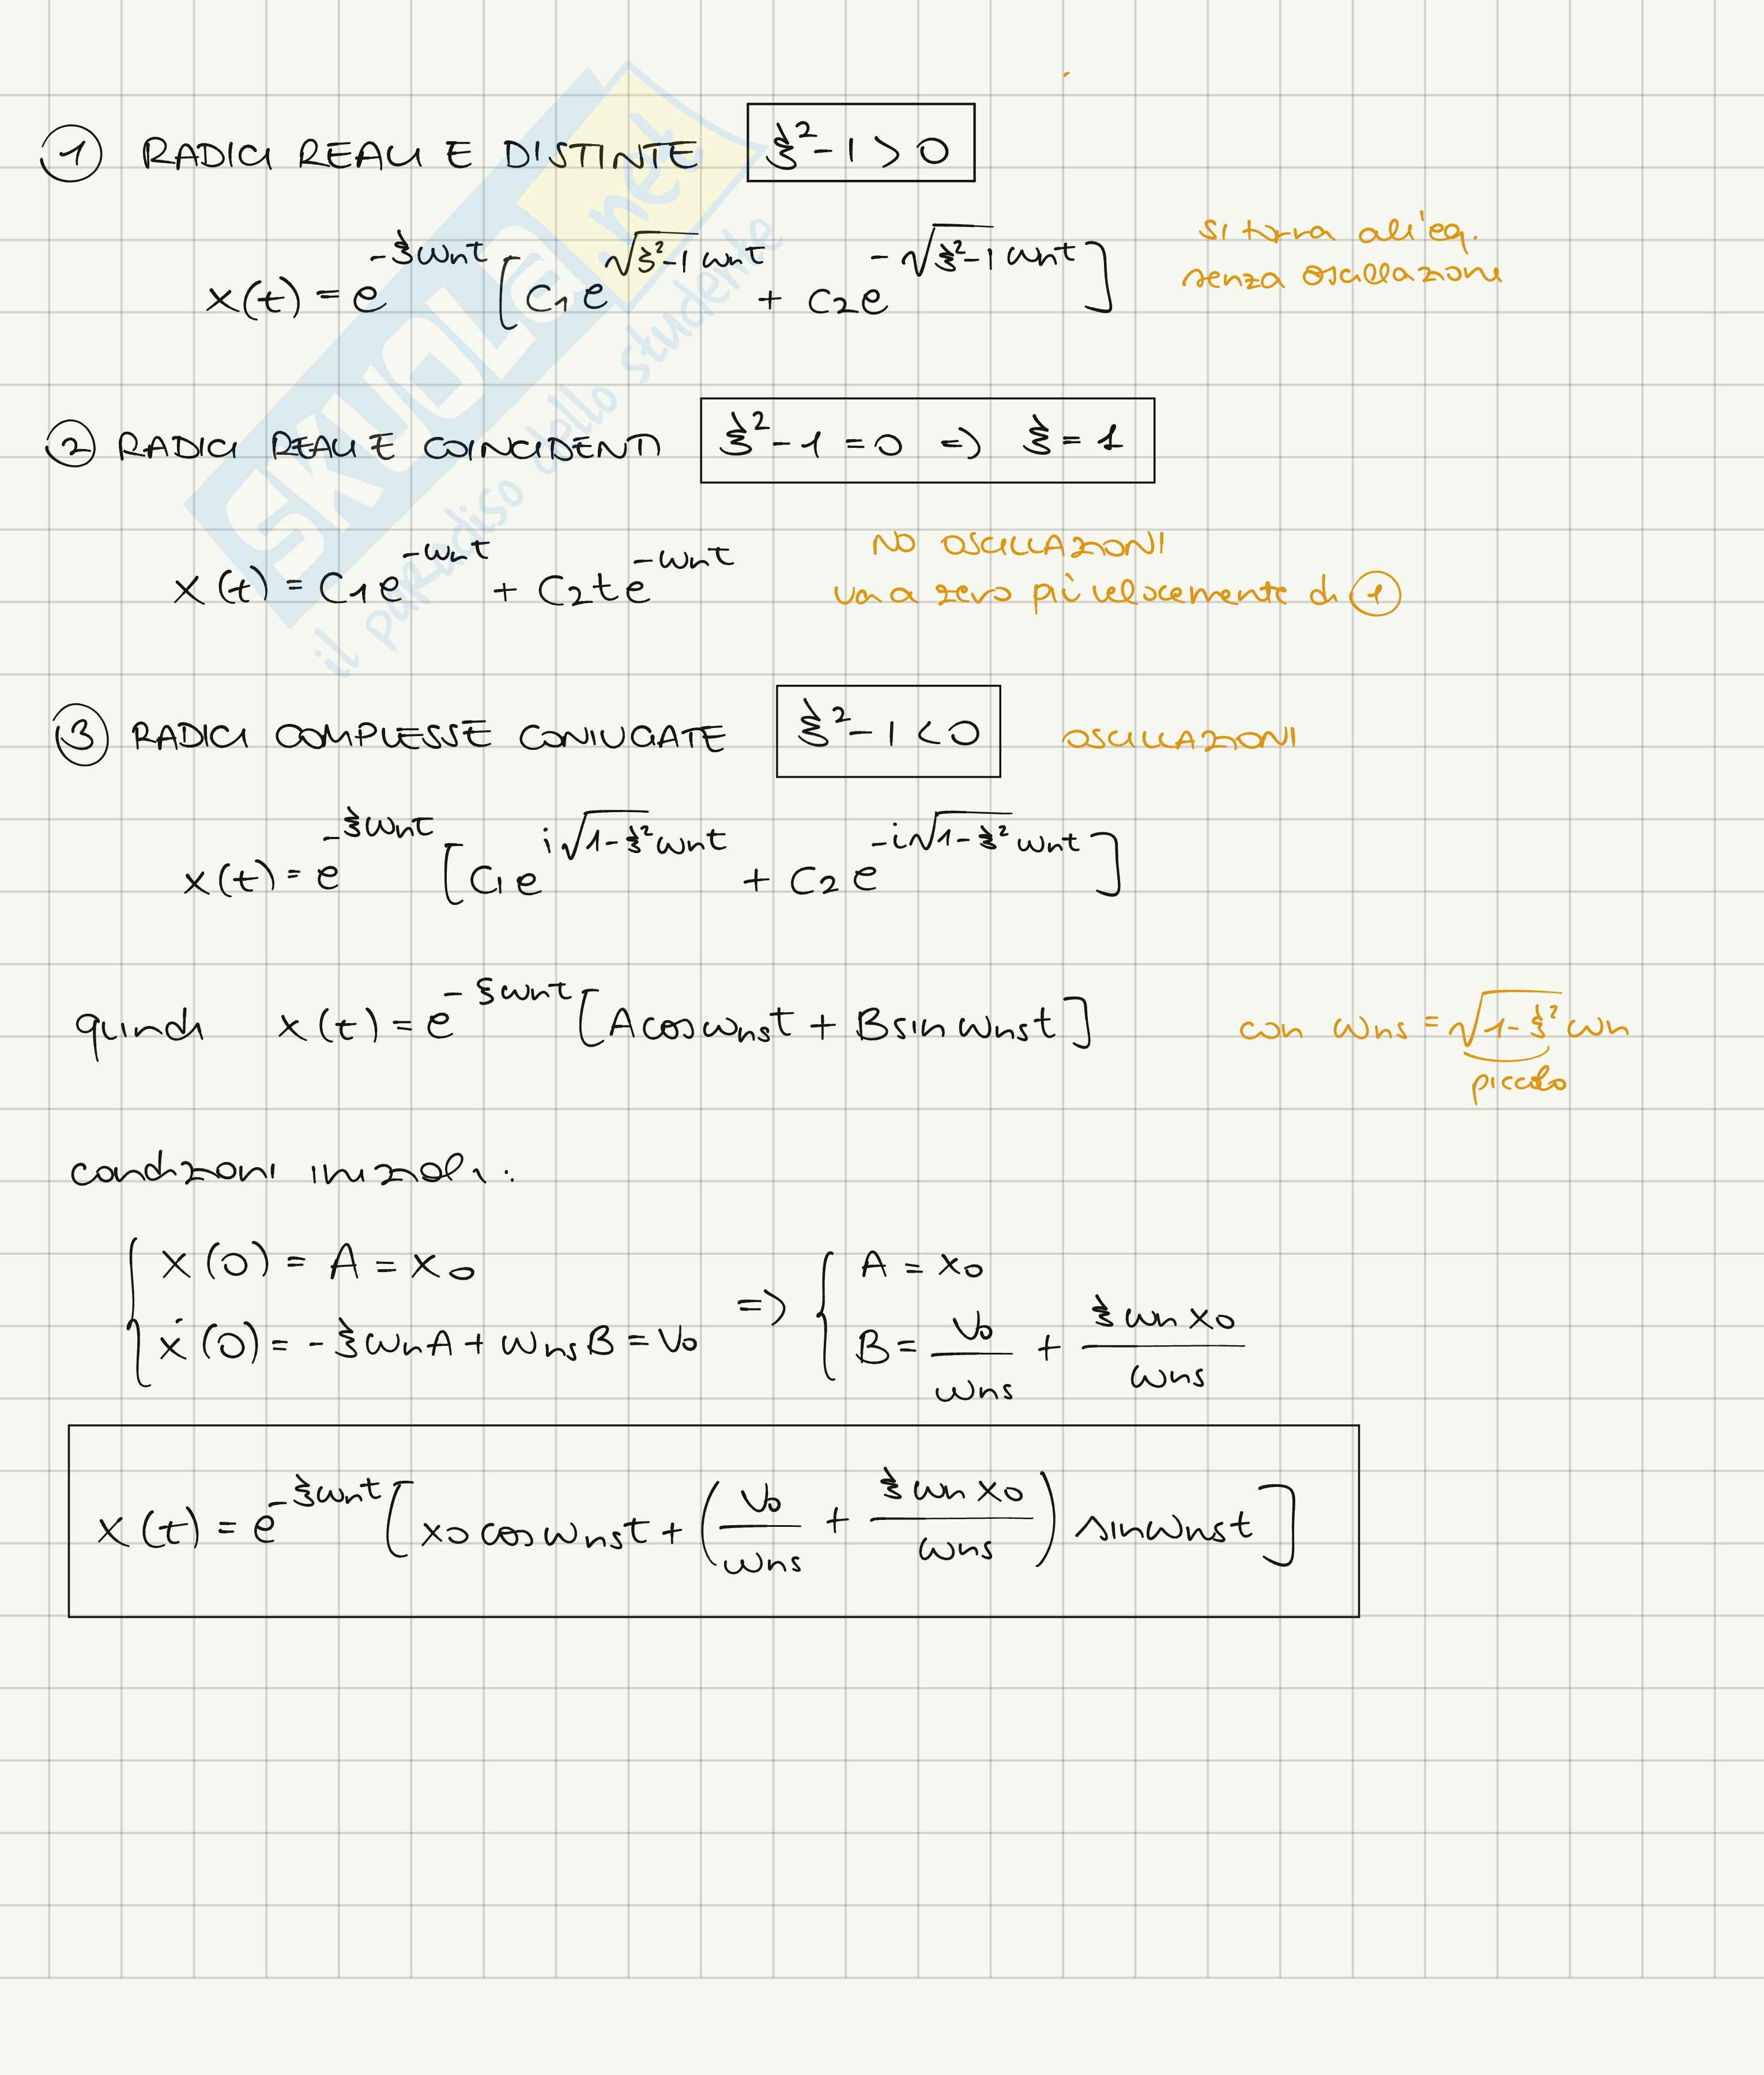 ① RADICI REALI E DISTINTE ξ² - 1 > 0
x(t) = e^{-ξωnt} [C1 e^{√(ξ²-1) ωnt} + C2 e^{-√(ξ²-1) ωnt}]
si torna all'eq.
senza oscillazioni
② RADICI REALI E COINCIDENTI ξ² - 1 = 0 => ξ = 1
x(t) = C1 e^{-ωnt} + C2 t e^{-ωnt}
NO OSCILLAZIONI
va a zero più velocemente di ①
③ RADICI COMPLESSE CONIUGATE ξ² - 1 < 0 OSCILLAZIONI
x(t) = e^{-ξωnt} [C1 e^{i√(1-ξ²) ωnt} + C2 e^{-i√(1-ξ²) ωnt}]
quindi x(t) = e^{-ξωnt} [A cos ωns t + B sin ωns t] con ωns = √(1-ξ²) ωn
piccolo
condizioni iniziali:
{ x(0) = A = x0 => { A = x0
ẋ(0) = -ξωn A + ωns B = v0 B = v0/ωns + ξωn x0/ωns
x(t) = e^{-ξωnt} [x0 cos ωns t + (v0/ωns + ξωn x0/ωns) sin ωns t]
SKUOLA.net
il paradiso dello studente